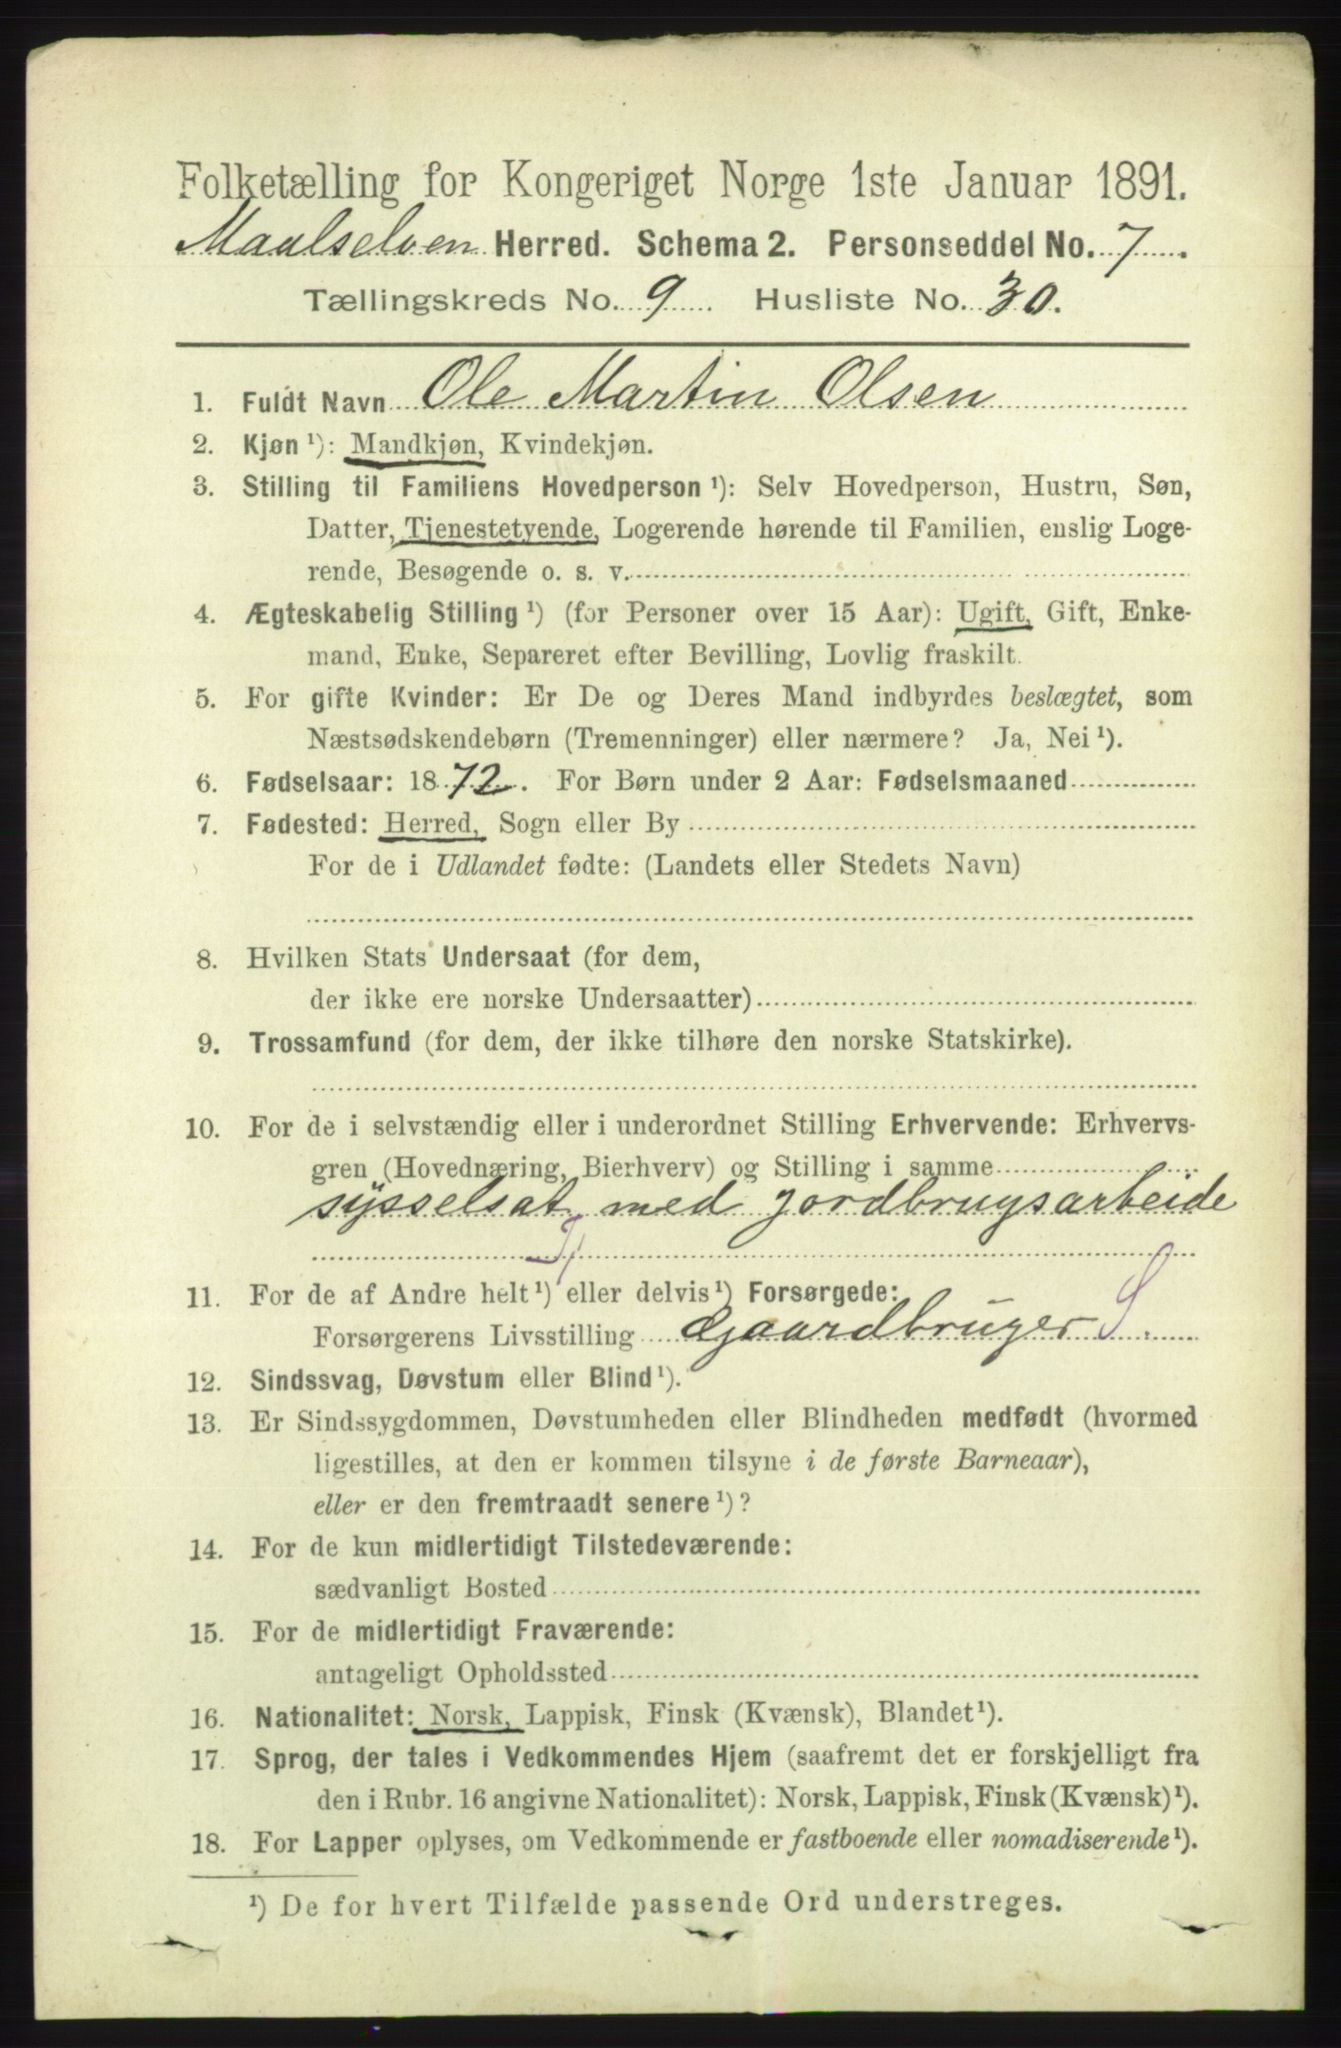 Folketælling for Kongeriget Norge 1ste Januar 1891.
Maalselven Herred. Schema 2. Personseddel No. 7.
Tællingskreds No. 9. Husliste No. 30.
1. Fuldt Navn Ole Martin Olsen
2. Kjøn ¹): Mandkjøn, Kvindekjøn.
3. Stilling til Familiens Hovedperson ¹): Selv Hovedperson, Hustru, Søn,
Datter, Tjenestetyende, Logerende hørende til Familien, enslig Loge-
rende, Besøgende o. s. v.
4. Ægteskabelig Stilling ¹) (for Personer over 15 Aar): Ugift, Gift, Enke-
mand, Enke, Separeret efter Bevilling, Lovlig fraskilt.
5. For gifte Kvinder: Er De og Deres Mand indbyrdes beslægtet, som
Næstsødskendebørn (Tremenninger) eller nærmere? Ja, Nei ¹).
6. Fødselsaar: 1872. For Børn under 2 Aar: Fødselsmaaned
7. Fødested: Herred, Sogn eller By
For de i Udlandet fødte: (Landets eller Stedets Navn)
8. Hvilken Stats Undersaat (for dem,
der ikke ere norske Undersaatter)
9. Trossamfund (for dem, der ikke tilhøre den norske Statskirke).
10. For de i selvstændig eller i underordnet Stilling Erhvervende: Erhvervs-
gren (Hovednæring, Bierhverv) og Stilling i samme
sysselsat med jordbrugsarbeide
11. For de af Andre helt ¹) eller delvis ¹) Forsørgede:
Forsørgerens Livsstilling Gaardbruger S.
12. Sindssvag, Døvstum eller Blind ¹).
13. Er Sindssygdommen, Døvstumheden eller Blindheden medfødt (hvormed
ligestilles, at den er kommen tilsyne i de første Barneaar),
eller er den fremtraadt senere ¹)?
14. For de kun midlertidigt Tilstedeværende:
sædvanligt Bosted
15. For de midlertidigt Fraværende:
antageligt Opholdssted
16. Nationalitet: Norsk, Lappisk, Finsk (Kvænsk), Blandet ¹).
17. Sprog, der tales i Vedkommendes Hjem (saafremt det er forskjelligt fra
den i Rubr. 16 angivne Nationalitet): Norsk, Lappisk, Finsk (Kvænsk) ¹).
18. For Lapper oplyses, om Vedkommende er fastboende eller nomadiserende ¹).
¹) De for hvert Tilfælde passende Ord understreges.